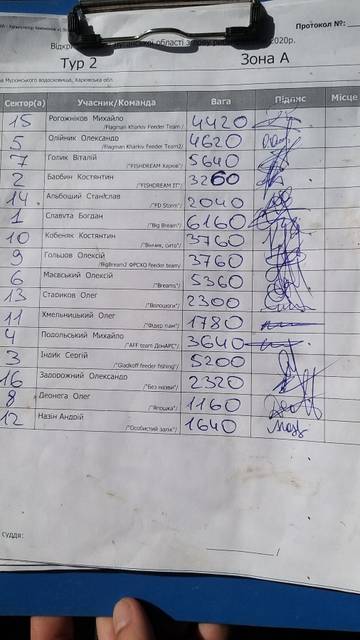 Протокол №:
2020р.
Тур 2 Зона А
Сектор(а) Учасник/Команда Вага Підпис Місце
15 Рогожніков Михайло 4420
/Flagman Kharkiv Feeder Team/
5 Олійник Олександр 4620
/Flagman Kharkiv Feeder Team2/
7 Голик Віталій 5640
/"FISHDREAM Харків"/
2 Бабкін Костянтин 3260
/"FISHDREAM ІТ"/
14 Альбощий Станіслав 2040
/"FD Storm"/
1 Славута Богдан 6160
/"Big Bream"/
10 Кобеняк Костянтин 3760
/"Вінчик, сито"/
9 Гольцов Олексій 3760
/"BigBream2 ФРСХО feeder team/
6 Маєвський Олексій 5360
/"Breams"/
13 Стариков Олег 2300
/"Волошоги"/
11 Хмельницький Олег 1780
/"Фідер пам"/
4 Подольський Михайло 3640
/"AFF team ДонАРС"/
3 Індик Сергій 5200
/"Gladkoff feeder fishing"/
16 Задорожний Олександр 2320
/"Без назви"/
8 Деонега Олег 1160
/"Япошка"/
12 Назін Андрій 1640
/"Особистий залік"/
судді: